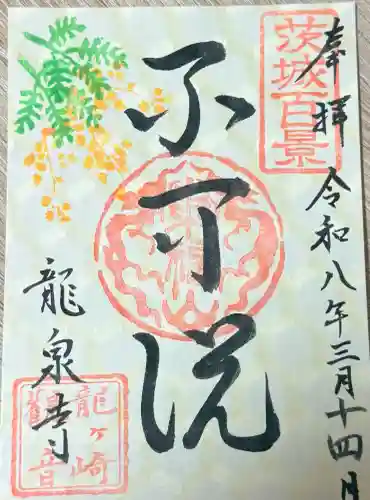 奉拝 令和八年三月十四日
茨城百景
不可説
龍泉寺
龍ヶ崎
観音